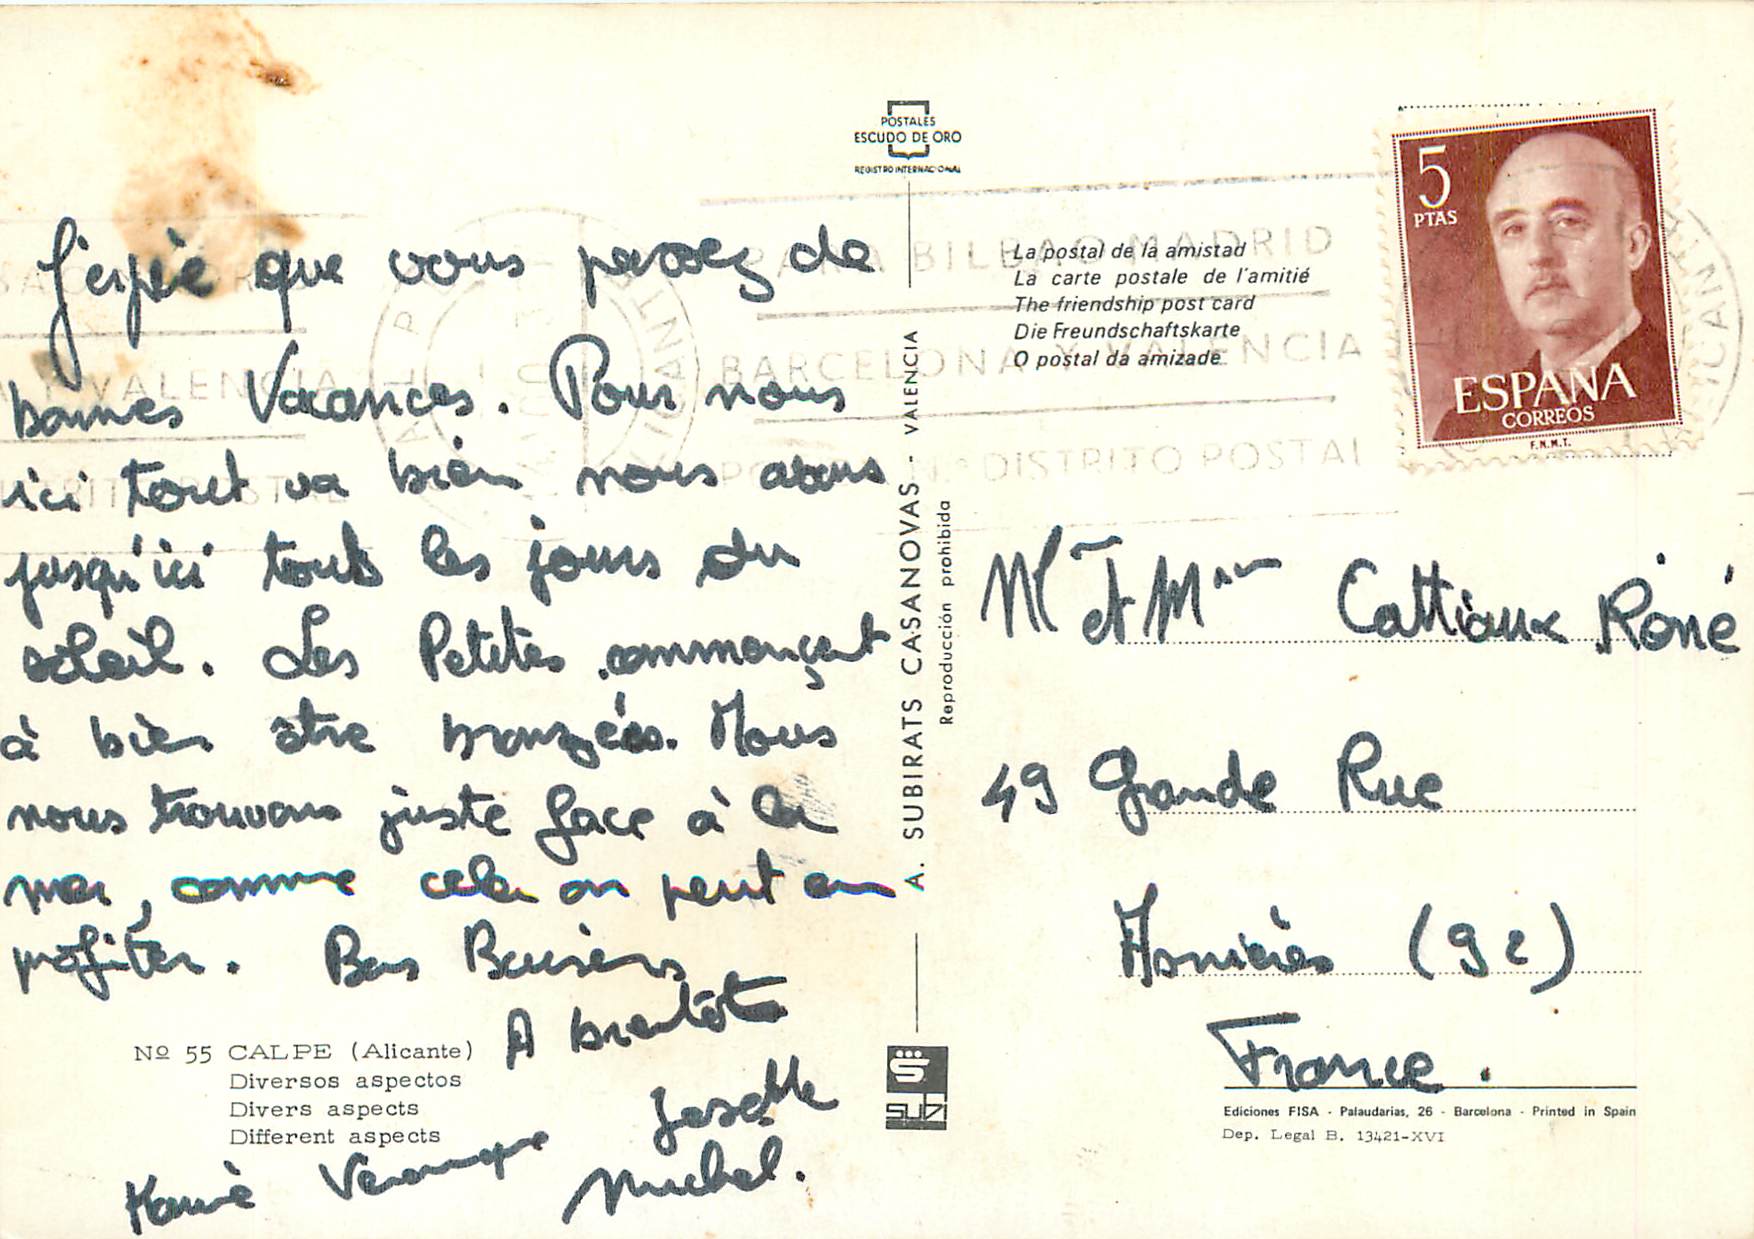 POSTALES
ESCUDO DE ORO
REGISTRO INTERNACIONAL
J'espère que vous passez de
bonnes Vacances. Pour nous
ici tout va bien nous avons
jusqu'ici tous les jours du
soleil. Les Petites commençent
à bien être bronzées. Nous
nous trouvons juste face à la
mer, comme cela on peut en
profiter. Bons Baisers
A bientôt
Josette
Véronique
Michel.
Nº 55 CALPE (Alicante)
Diversos aspectos
Divers aspects
Different aspects
A. SUBIRATS CASANOVAS - VALENCIA
Reproducción prohibida
SUBI
PARA BILBAO MADRID
BARCELONA Y VALENCIA
PONGA Nº DISTRITO POSTAL
La postal de la amistad
La carte postale de l'amitié
The friendship post card
Die Freundschaftskarte
O postal da amizade
5
PTAS
ESPAÑA
CORREOS
F.N.M.T.
Mr et Mme Cattiaux René
49 Grande Rue
Asnières (92)
France.
Ediciones FISA - Palaudarias, 26 - Barcelona - Printed in Spain
Dep. Legal B. 13421-XVI